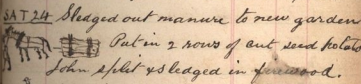 SAT 24 Sledged out manure to new garden
Put in 2 rows of cut seed potato
John split & sledged in firewood.